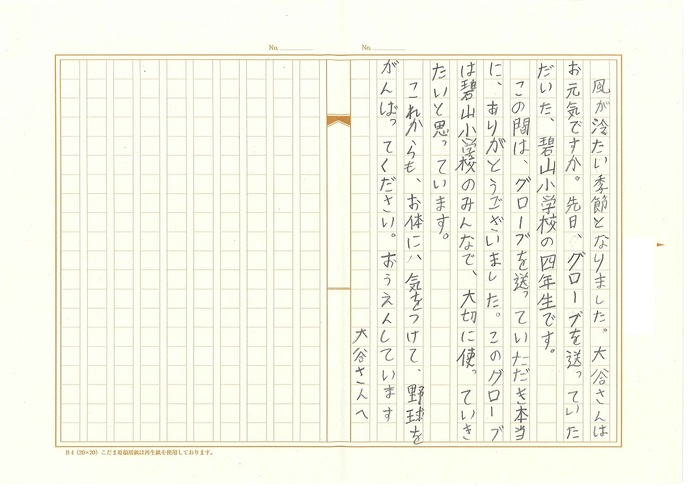 No.
No.
風が冷たい季節となりました。大谷さんは
お元気ですか。先日、グローブを送っていた
だいた、碧山小学校の四年生です。
この間は、グローブを送っていただき本当
に、ありがとうございました。このグローブ
は碧山小学校のみんなで、大切に使っていき
たいと思っています。
これからも、お体に、気をつけて、野球を
がんばってください。おうえんしています
大谷さんへ
B4（20×20）こだま原稿用紙は再生紙を使用しております。